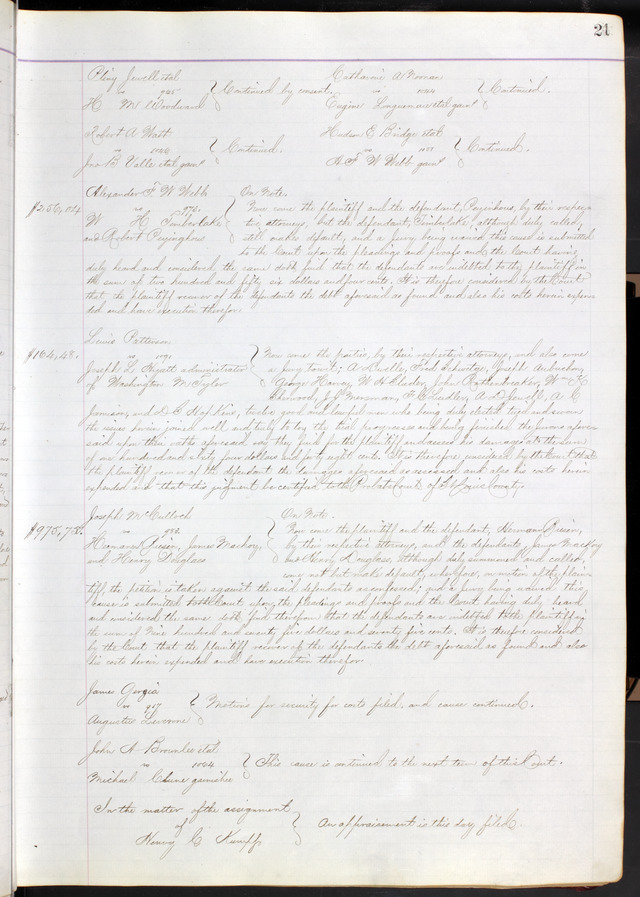 21
Pliny Jewell etal
vs 985 Continued by consent.
H. M. Woodward
Catharine A Noonan
vs Continued.
Eugine etal garnt
Robert A Watt
vs Continued.
Jno B Valle etal garnt
Hudson E Bridge etal
vs Continued.
A F W Webb garnt
Alexander F W Webb On Note.
$256,04 vs 972. Now come the plaintiff and the defendant, by their respec-
W H Timberlake tive attorneys, but the defendant, Timberlake, although duly called,
and Robert still makes default, and a jury being waived this cause is submitted
to the Court upon the pleadings and proofs and the Court having
duly heard and considered the same doth find that the defendants are indebted to the plaintiff in
the sum of two hundred and fifty six dollars and four cents. It is therefore considered by the Court
that the plaintiff recover of the defendants the debt aforesaid as found and also his costs herein expen-
ded and have execution therefor.
Louis Patterson
$164,48. vs Now come the parties, by their respective attorneys, and also come
Joseph L Hyatt administrator a jury towit;
of Washington M Tyler George Harvey, W H John Rathenbreaker, Wm H
Sherwood, J G A C
Jamison, and D C twelve good and lawful men who being duly elected tried and sworn
the issues herein joined well and truly to try the trial progresses and being finished the Jurors afore-
said upon their oaths aforesaid say they find for the plaintiff and assess his damages at the sum
of one hundred and sixty four dollars and forty eight cents. It is therefore considered by the Court that
the plaintiff recover of the defendant the damages aforesaid so assessed and also his costs herein
expended and that this judgment be certified to the Probate Court of St Louis County.
Joseph McCulloch On Note.
$975,75. vs Now come the plaintiff and the defendant, Hermann
Hermann James Mackay, by their respective attorneys, and the defendants, James Mackay
and Henry Douglass and Henry Douglass, although duly summoned and called,
come not but make default; wherefore, on motion of the plain-
tiff, the petition is taken against the said defendants as confessed; and a jury being waived this
cause is submitted to the Court upon the pleadings and proofs and the Court having duly heard
and considered the same doth find therefore that the defendants are indebted to the plaintiff in
the sum of Nine hundred and seventy five dollars and seventy five cents. It is therefore considered
by the Court that the plaintiff recover of the defendants the debt aforesaid as found and also
his costs herein expended and have execution therefor.
James Gorgia
vs 957 Motion for security for costs filed and cause continued.
Augustus
John A Brownlee etal
vs 1064 This cause is continued to the next term of this Court.
Michael Clune garnishee
In the matter of the assignment
of An appraisement is this day filed
Henry C Kumpf